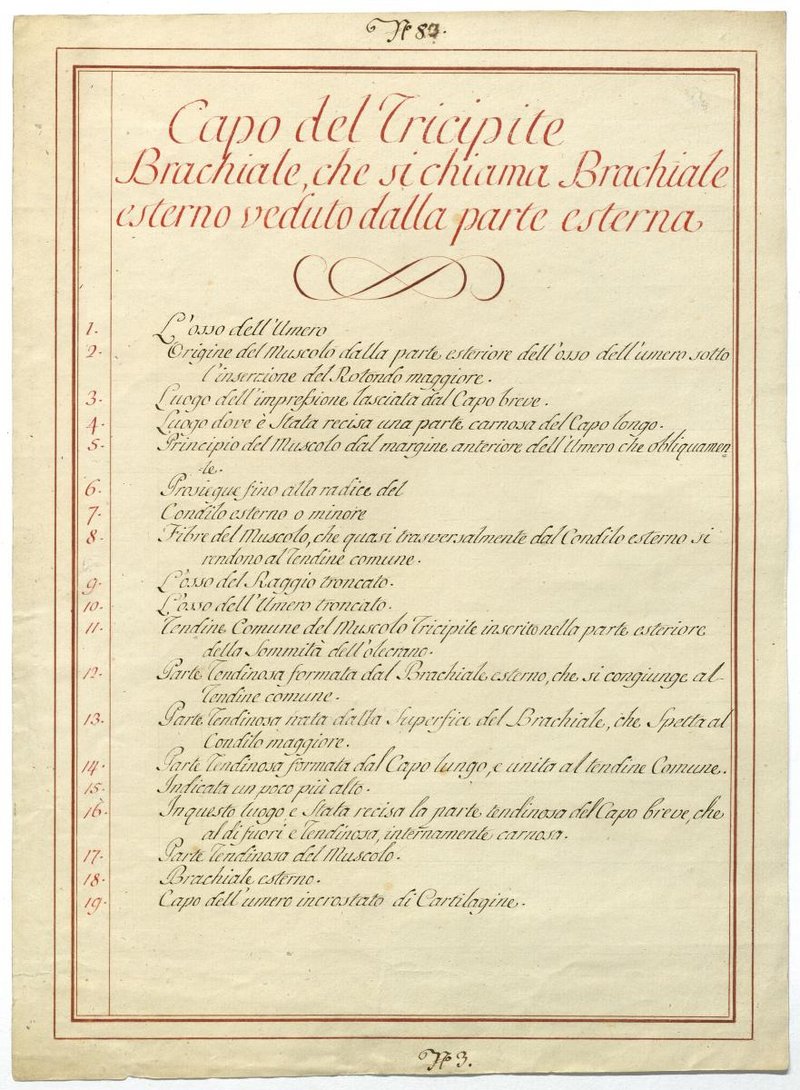 Nº 83.
Capo del Tricipite
Brachiale, che si chiama Brachiale
esterno veduto dalla parte esterna
1. L'osso dell'Umero
2. Origine del Muscolo dalla parte esteriore dell'osso dell'umero sotto
l'inserzione del Rotondo maggiore.
3. Luogo dell'impressione lasciata dal Capo breve.
4. Luogo dove è Stata recisa una parte carnosa del Capo longo.
5. Principio del Muscolo dal margine anteriore dell'Umero che obliquamen-
te.
6. Prosiegue fino alla radice del
7. Condilo esterno o minore
8. Fibre del Muscolo, che quasi trasversalmente dal Condilo esterno si
rendono al Tendine comune.
9. L'osso del Raggio troncato.
10. L'osso dell'Umero troncato.
11. Tendine Comune del Muscolo Tricipite inscrito nella parte esteriore
della Sommità dell'olicrano.
12. Parte Tendinosa formata dal Brachiale esterno, che si congiunge al
Tendine comune.
13. Parte Tendinosa nata dalla Superfice del Brachiale, che Spetta al
Condilo maggiore.
14. Parte Tendinosa formata dal Capo lungo, e unita al tendine Comune.
15. Indicata un poco più alto.
16. In questo luogo è Stata recisa la parte tendinosa del Capo breve, che
al di fuori è Tendinosa, internamente carnosa.
17. Parte Tendinosa del Muscolo.
18. Brachiale esterno.
19. Capo dell'umero incrostato di Cartilagine.
Nº 3.